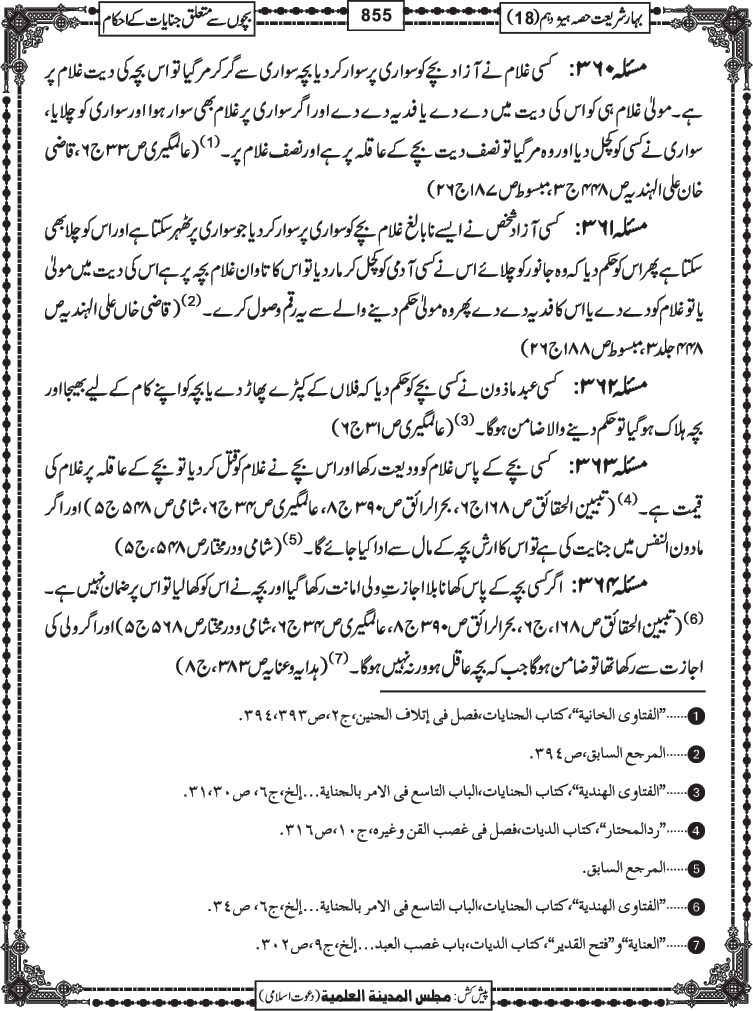 بہار شریعت حصہ ہیژدہم (18)
855
بچوں سے متعلق جنایات کے احکام
مسئلہ ۳۶۰: کسی غلام نے آزاد بچے کو سواری پر سوار کر دیا بچہ سواری سے گر کر مر گیا تو اس بچہ کی دیت غلام پر
ہے۔ مولیٰ غلام ہی کو اس کی دیت میں دے دے یا فدیہ دے دے اور اگر سواری پر غلام بھی سوار ہوا اور سواری کو چلایا،
سواری نے کسی کو کچل دیا اور وہ مر گیا تو نصف دیت بچے کے عاقلہ پر ہے اور نصف غلام پر۔(1) (عالمگیری ص ۳۳ ج ۶، قاضی
خان علی الہندیہ ص ۴۴۸ ج ۳، مبسوط ص ۱۸۷ ج ۲۶)
مسئلہ ۳۶۱: کسی آزاد شخص نے ایسے نابالغ غلام بچے کو سواری پر سوار کر دیا جو سواری پر ٹھہر سکتا ہے اور اس کو چلا بھی
سکتا ہے پھر اس کو حکم دیا کہ وہ جانور کو چلائے اس نے کسی آدمی کو کچل کر مار دیا تو اس کا تاوان غلام بچہ پر ہے اس کی دیت میں مولیٰ
یا تو غلام کو دے دے یا اس کا فدیہ دے دے پھر وہ مولیٰ حکم دینے والے سے یہ رقم وصول کرے۔(2) (قاضی خاں علی الہندیہ ص
۴۴۸ جلد ۳، مبسوط ص ۱۸۸ ج ۲۶)
مسئلہ ۳۶۲: کسی عبد ماذون نے کسی بچے کو حکم دیا کہ فلاں کے کپڑے پھاڑ دے یا بچہ کو اپنے کام کے لیے بھیجا اور
بچہ ہلاک ہو گیا تو حکم دینے والا ضامن ہوگا۔(3) (عالمگیری ص ۳۱ ج ۶)
مسئلہ ۳۶۳: کسی بچے کے پاس غلام کو ودیعت رکھا اور اس بچے نے غلام کو قتل کر دیا تو بچے کے عاقلہ پر غلام کی
قیمت ہے۔(4) (تبیین الحقائق ص ۱۶۸ ج ۶، بحر الرائق ص ۳۹۰ ج ۸، عالمگیری ص ۳۴ ج ۶، شامی ص ۵۴۸ ج ۵) اور اگر
مادون النفس میں جنایت کی ہے تو اس کا ارش بچہ کے مال سے ادا کیا جائے گا۔(5) (شامی و درمختار ص ۵۴۸، ج ۵)
مسئلہ ۳۶۴: اگر کسی بچہ کے پاس کھانا بلا اجازت ولی امانت رکھا گیا اور بچہ نے اس کو کھا لیا تو اس پر ضمان نہیں ہے۔
(6) (تبیین الحقائق ص ۱۶۸، ج ۶، بحر الرائق ص ۳۹۰ ج ۸، عالمگیری ص ۳۴ ج ۶، شامی و درمختار ص ۵۶۸ ج ۵) اور اگر ولی کی
اجازت سے رکھا تھا تو ضامن ہوگا جب کہ بچہ عاقل ہو ورنہ نہیں ہوگا۔(7) (ہدایہ و عنایہ ص ۳۸۳، ج ۸)
1......"الفتاوی الخانیة"، کتاب الجنایات، فصل فی إتلاف الجنین، ج۲، ص۳۹۴،۳۹۳.
2......المرجع السابق، ص۳۹۴.
3......"الفتاوی الهندیة"، کتاب الجنایات، الباب التاسع فی الامر بالجنایة...إلخ، ج۶، ص۳۱،۳۰.
4......"ردالمحتار"، کتاب الدیات، فصل فی غصب القن وغیره، ج۱۰، ص۳۱۶.
5......المرجع السابق.
6......"الفتاوی الهندیة"، کتاب الجنایات، الباب التاسع فی الامر بالجنایة...إلخ، ج۶، ص۳۴.
7......"العنایة" و"فتح القدیر"، کتاب الدیات، باب غصب العبد...إلخ، ج۹، ص۳۰۲.
پیش کش: مجلس المدینة العلمیة (دعوت اسلامی)